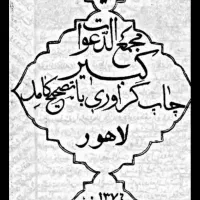 مجمع الدعوات
کبیر
چاپ گراوری با تصحیح کامل
لاهور
۱۳۷۶